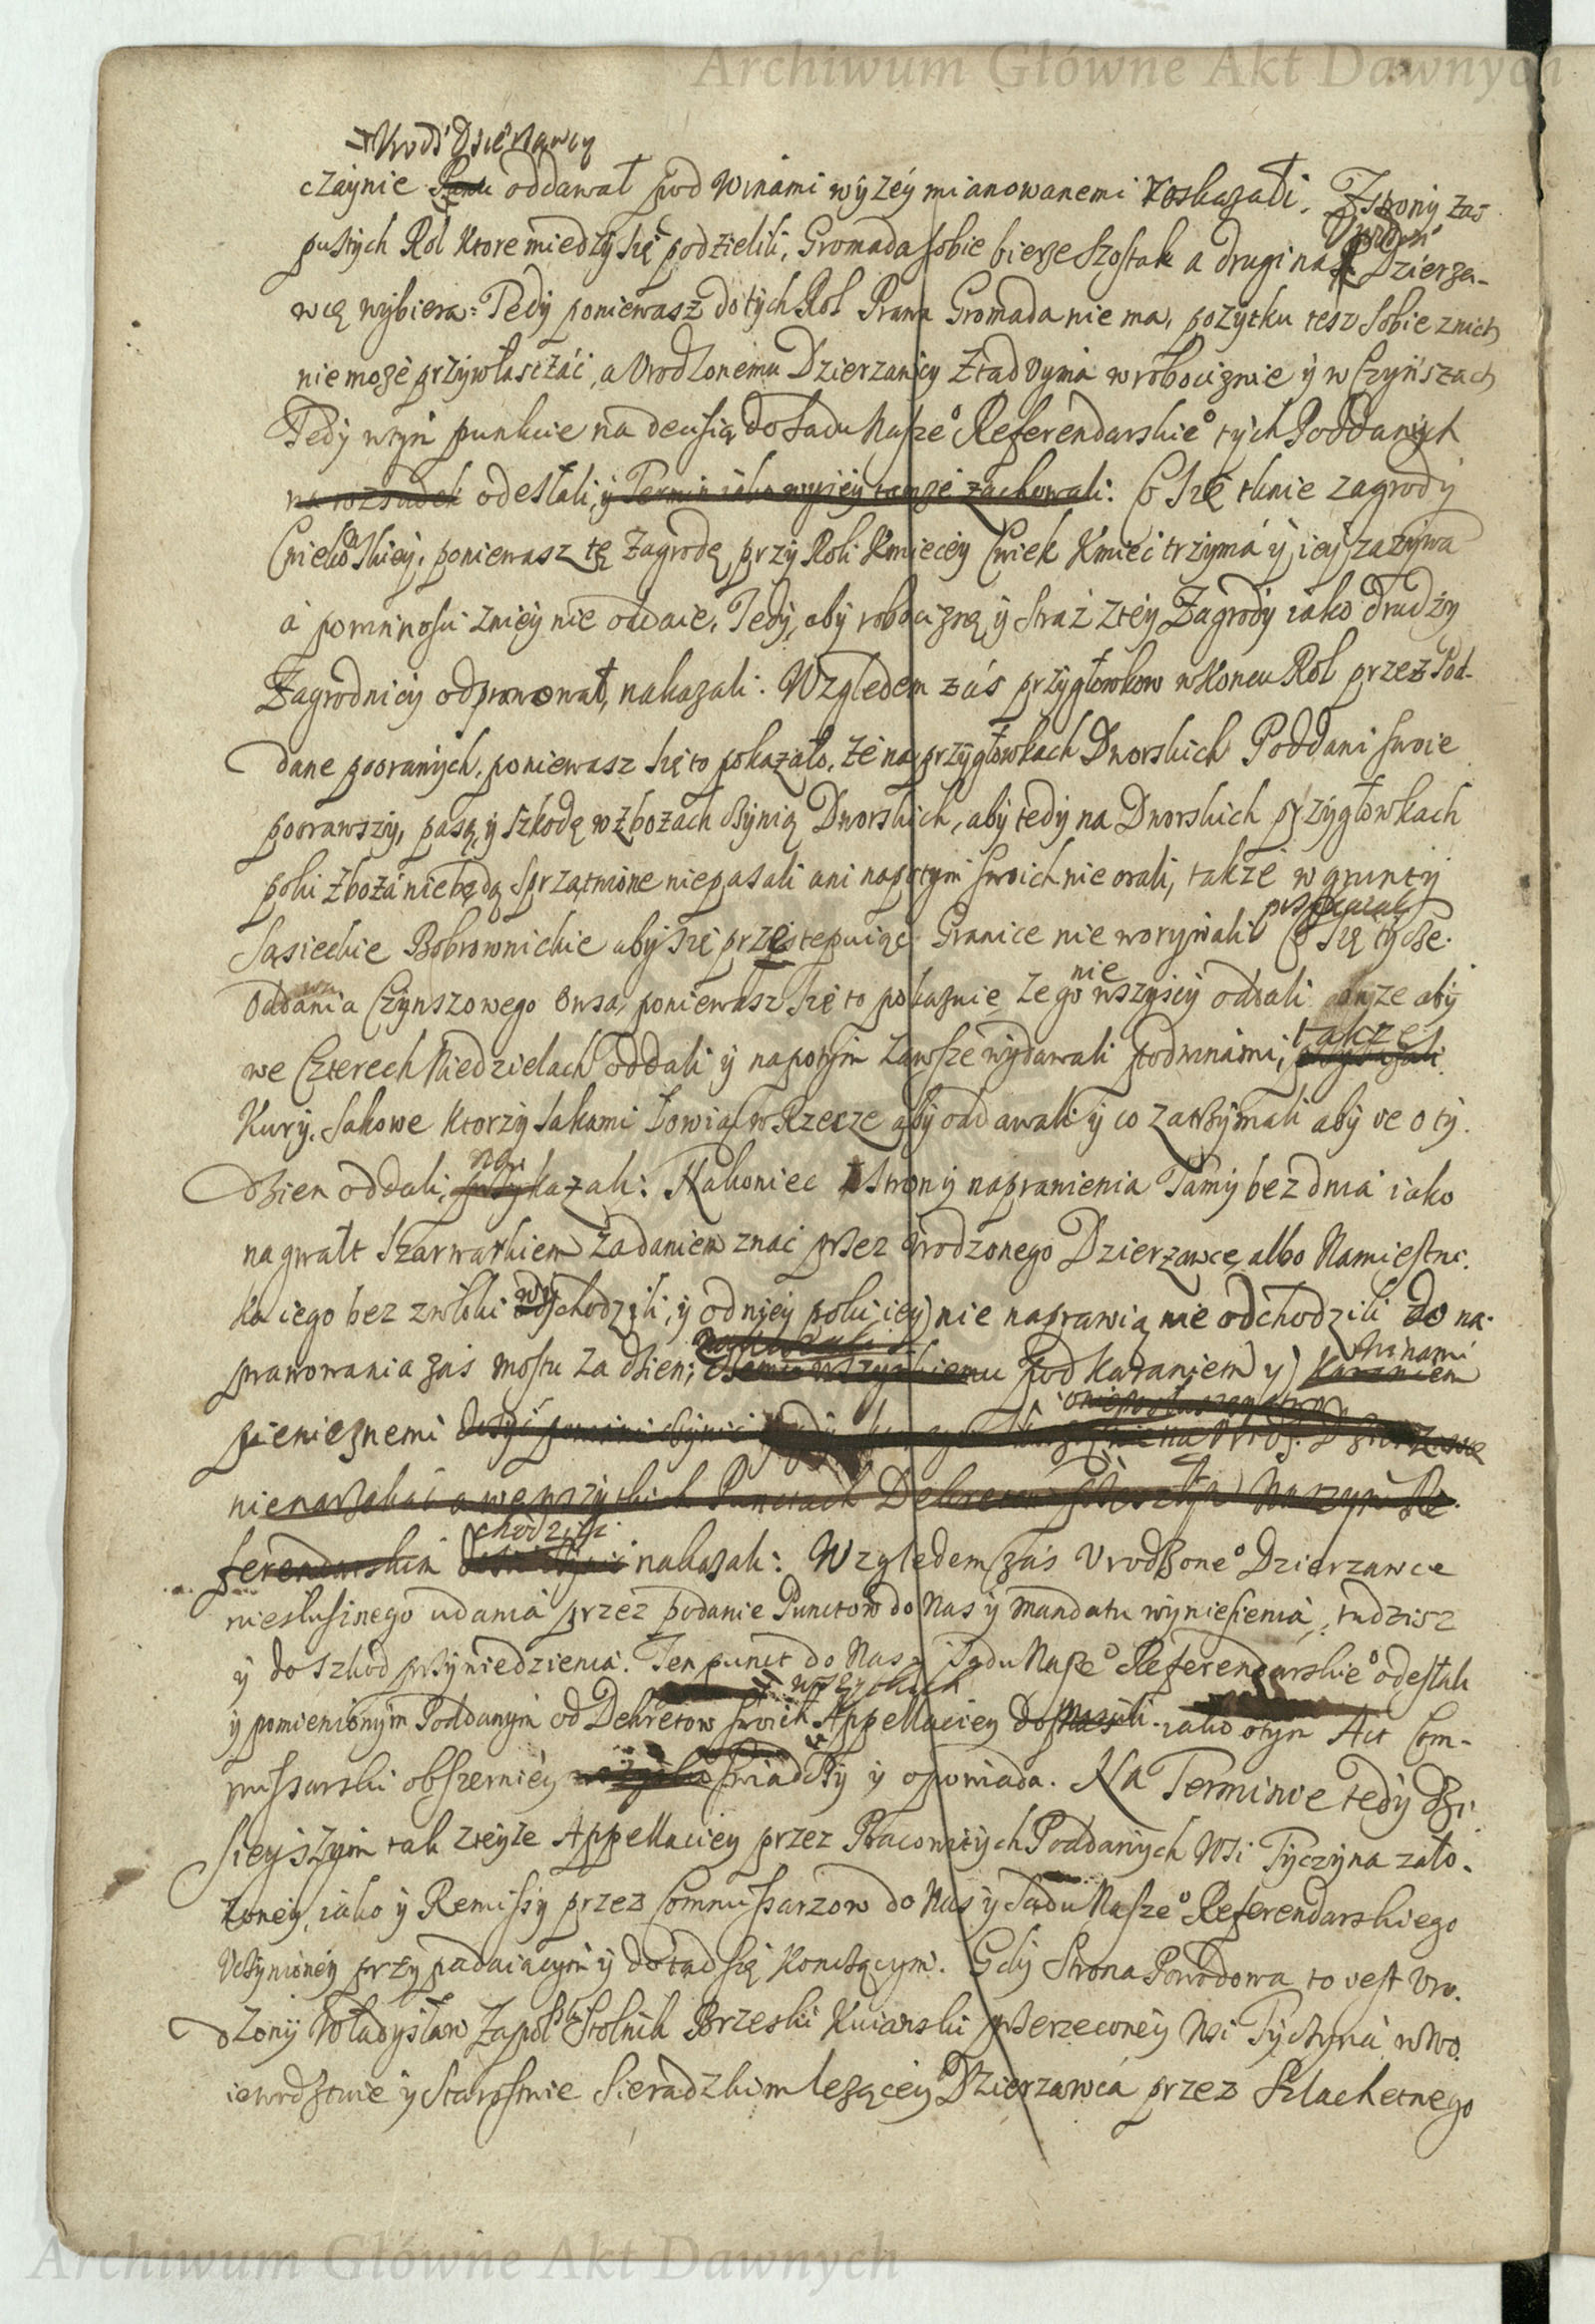 Archiwum Główne Akt Dawnych
Urodź Dzierżawcy
czaynie Panu oddawał pod winami wyżey mianowanemi roskazali. Zstrony zas
pustych Rol ktore miedzy się podzielili, Gromada sobie bierze szostak a drugi na Urodź Dzierza-
wcę wybiera: Tedy poniewasz do tych Rol Prawa Gromada nie ma, pozytku tesz sobie znich
nie może przywłaszczáć, a Urodzonemu Dzierzawcy ztąd uyma w robociznie y w Czynszach
Tedy wtym punkcie na decisią do sądu Nasze⁰ Referendarskie⁰ tych Poddanych
na rozsądek odesłali, y Termin iako wyżey tamże zachowali: Co się tknie zagrody
Cwiekowskiey, poniewasz tę Zagrodę przy Roli Kmieciey Cwiek Kmieć trzyma y iey zażywa
a powinnosci zniey nie oddaie. Tedy, aby robociznę y straż ztey Zagrody iako drudzy
Zagrodnicy odprawował, nakazali: Względem záś przygłowkow w koncu Rol przez Pod-
dane pooranych, poniewasz się to pokazało, że na przygłowkach Dworskich Poddani swoie
poorawszy, pasą, y szkodę w zbożach czynią Dworskich, aby tedy na Dworskich przygłowkach
poki zboża nie będą sprzątnione nie pasali ani napotym swoich nie orali, także w grunty
Sąsieckie Bobrownickie aby się przestepuiąc Granice nie worywali Co się tycze
Oddania Czynszowego Owsa, poniewasz się to pokaznie że go nie wszyscy oddali aby
we Czterech Niedzielach oddali y napotym zawsze wydawali pod winami, także
Kury Sakowe ktorzy sakami łowią w Rzecze aby oddawali y co zatrzymali aby ve o ty.
dzien oddali, nakazali: Nakoniec strony naprawienia Tamy bez dnia iako
na gwałt szarwarkiem zadaniem znać przez Urodzonego Dzierzawcę albo Namiestni.
ka iego bez zwłoki wychodzili, y od niey poki iey nie naprawią nie odchodzili do na-
prawowania zas mostu za dzien; pod karaniem y winami
pienieznemi
nienarzekać a we wszystkich Punctach Dekretem Naszym Re-
ferendarskim chodzili nakazali: Względem zas Urodzone⁰ Dzierzawce
niesłusznego udania przez podanie Punctow do Nas y mandatu wyniesienia, tudziesz
y do szkod przywiedzienia. Ten punct do Nas y sądu Nasze⁰ Referendarskie⁰ odesłali
y pomienionym Poddanym od Dekretow swoich wszystkich Appellaciey dopuscili iako o tym Act Com-
missarski obszerniey swiadczy y opowiada. Na Terminie tedy dzi
sieyszym tak zteyże Appellaciey przez Pracowitych Poddanych Wsi Tyczyna zało-
żoney, iako y Remissy przez Commissarzow do Nas y Sądu Nasze⁰ Referendarskiego
Uczynioney przypadaiącym y dotąd się konczącym. Gdy Strona Powodowa to iest Uro.
dzony Władysław Zapolski Stolnik Brzeski Kuiawski przerzeconey Wsi Tyczyna w Wo.
iewodztwie y Starostwie Sieradzkim leżącey Dzierzawca przez Szlachetnego
Archiwum Główne Akt Dawnych